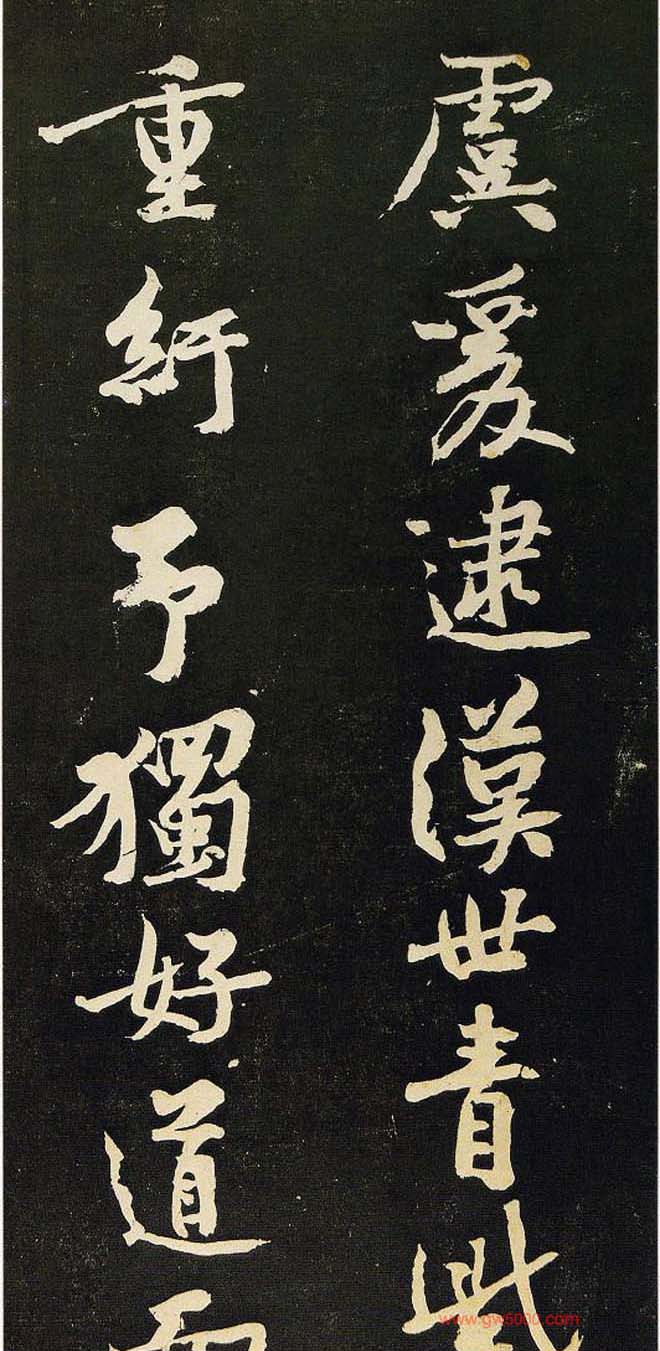 虞爰逮漢世青紫
重紆予獨好道而
www.gw5000.com